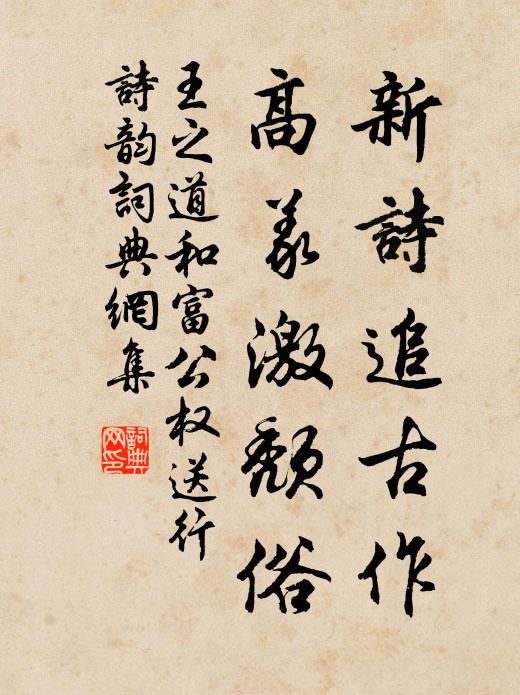 新詩追古作
高義激頹俗
王之道和富公权送行
詩韵詞典網集
詞典
网印